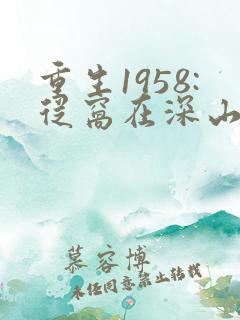 重生1958:
从窝在深山
慕容博
未经同意禁止转载